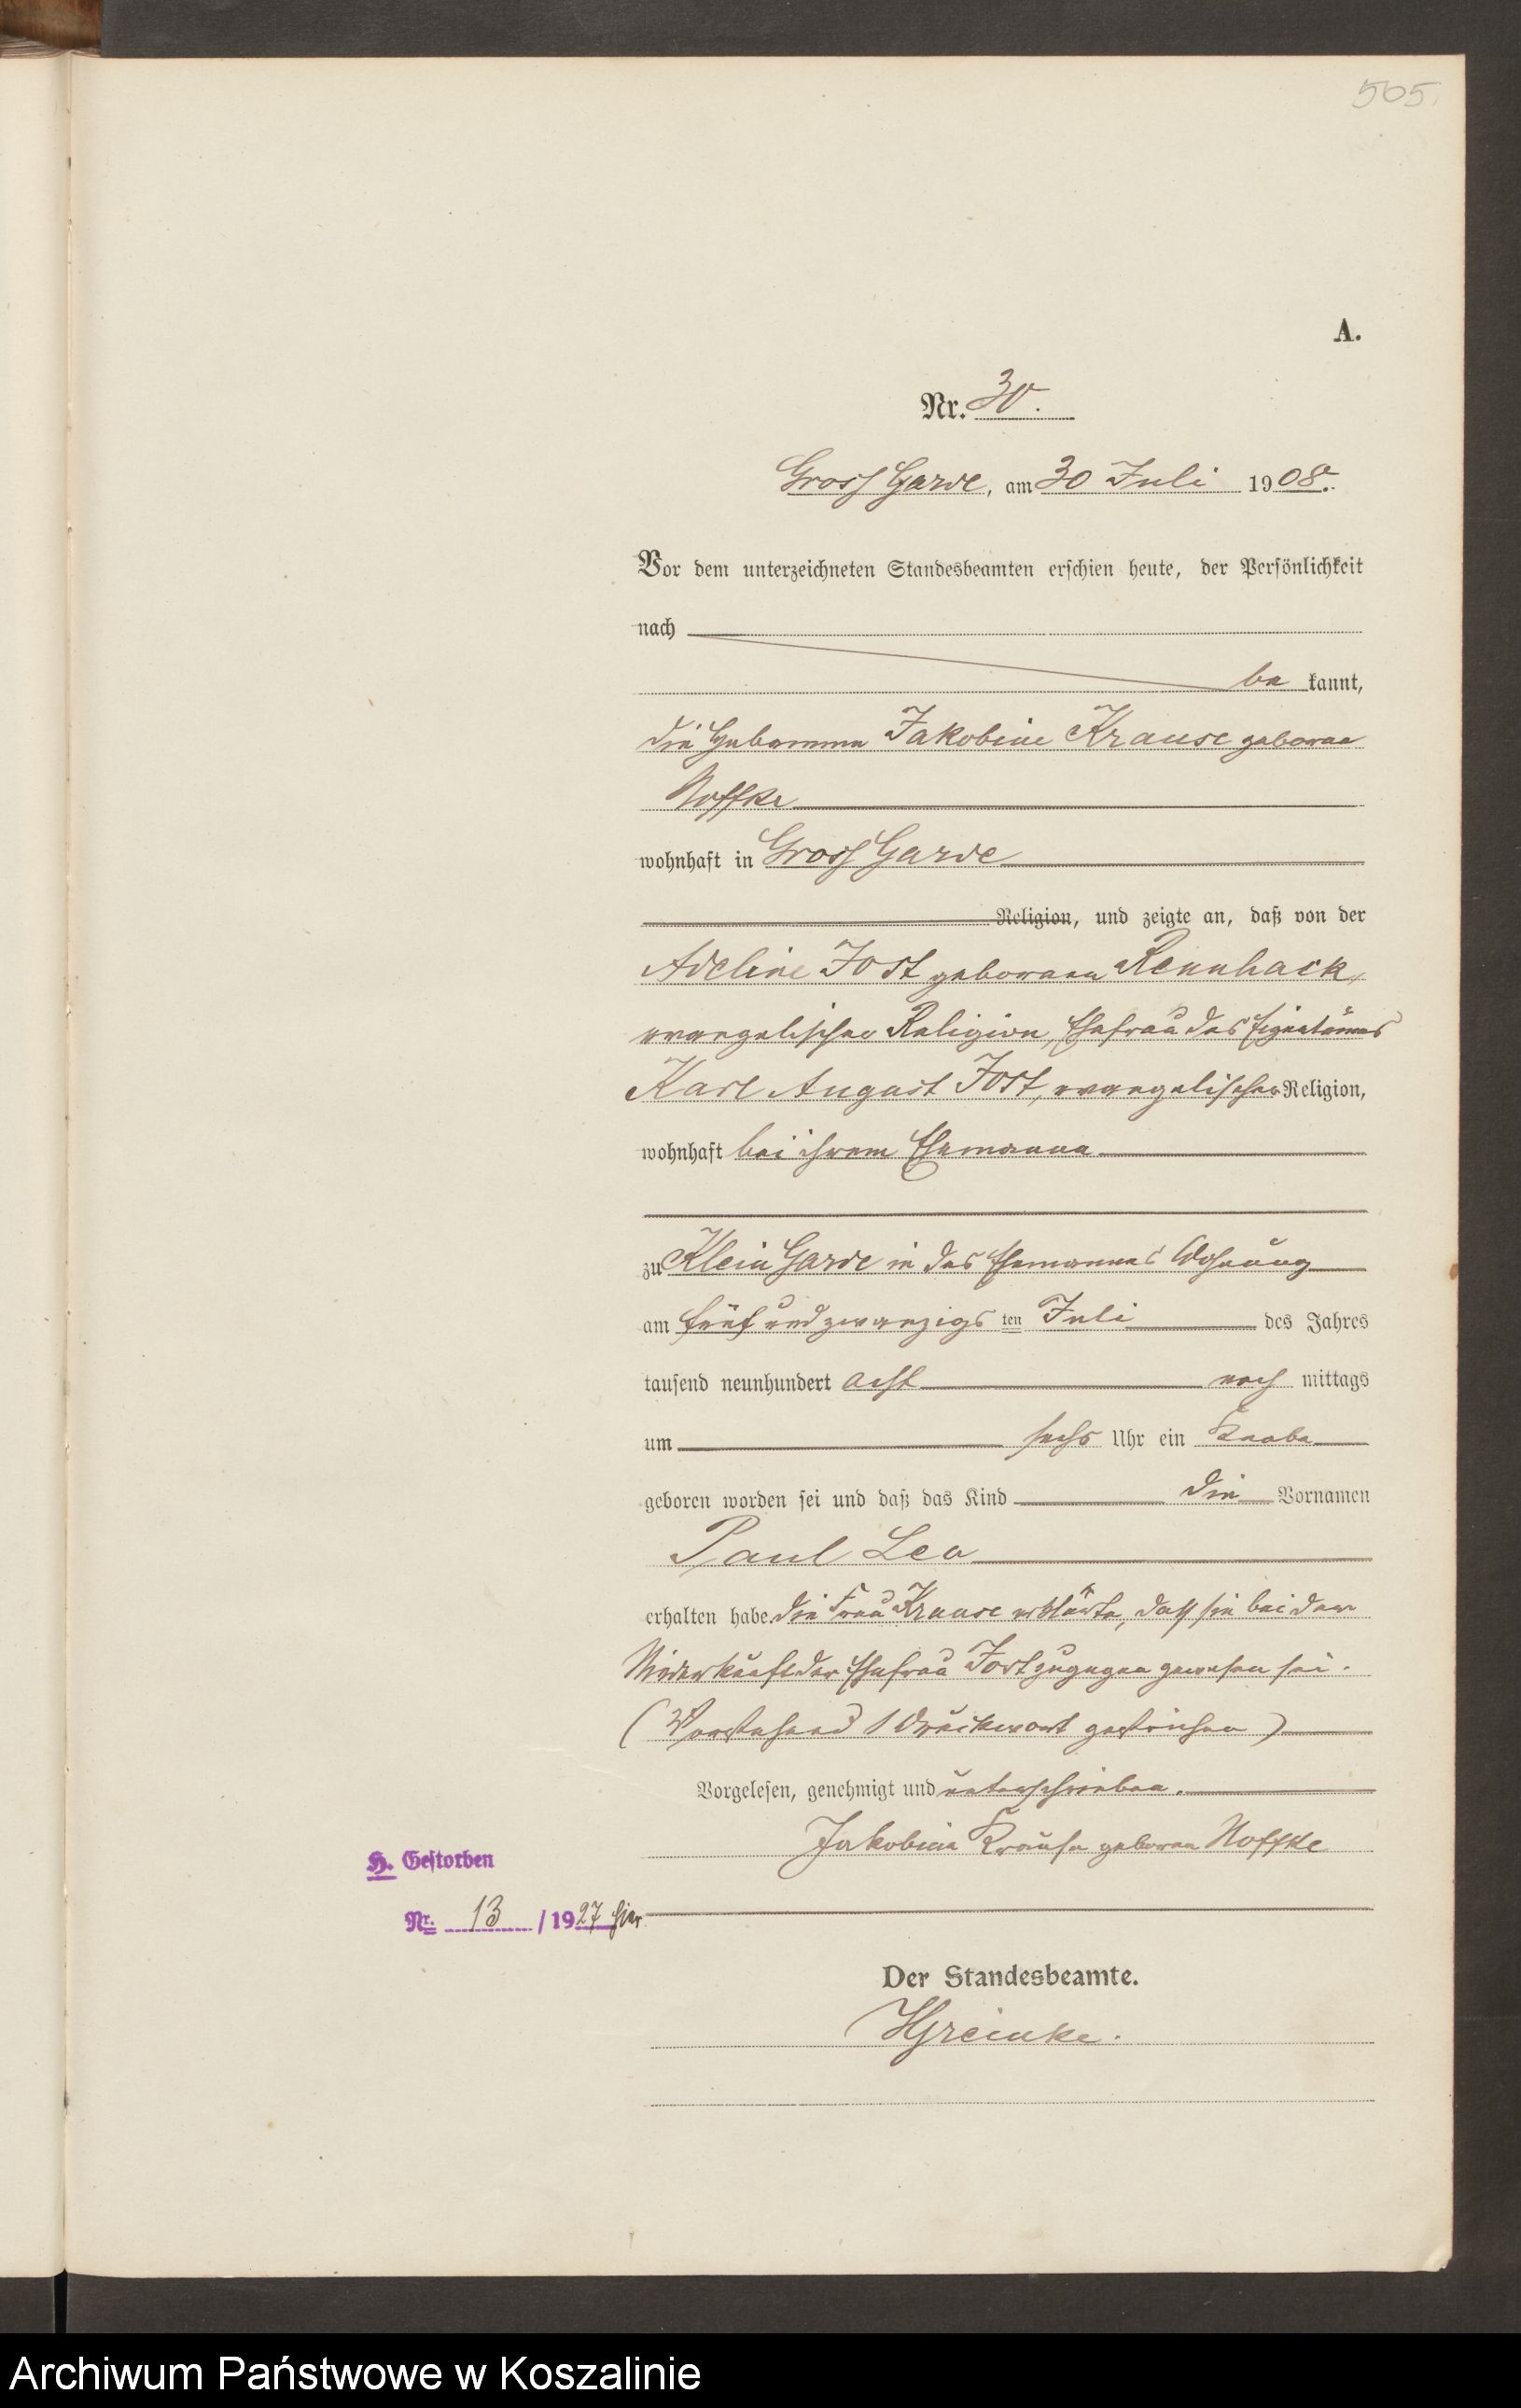 505.
A.
Nr. 30.
Gross Garde, am 30 Juli 1908.
Vor dem unterzeichneten Standesbeamten erschien heute, der Persönlichkeit
nach
be kannt,
die Hebamme Jakobine Krause geborne
Noffke
wohnhaft in Gross Garde
Religion, und zeigte an, daß von der
Adeline Jost geborenen Rennhack,
evangelischer Religion, Ehefrau des Eigentümers
Karl August Jost, evangelischer Religion,
wohnhaft bei ihrem Ehemanne
zu Klein Garde in des Ehemannes Wohnung
am fünf und zwanzigs ten Juli des Jahres
tausend neunhundert acht nach mittags
um sechs Uhr ein Knabe
geboren worden sei und daß das Kind die Vornamen
Paul Leo
erhalten habe. Die Frau Krause erklärte, daß sie bei der
Niederkunft der Ehefrau Jost zugegen gewesen sei.
(Vorstehend 1 Druckwort gestrichen)
Vorgelesen, genehmigt und unterschrieben.
Jakobine Krause geborne Noffke
H. Gestorben
Nr. 13 / 1927 hier
Der Standesbeamte.
Greinke.
Archiwum Państwowe w Koszalinie